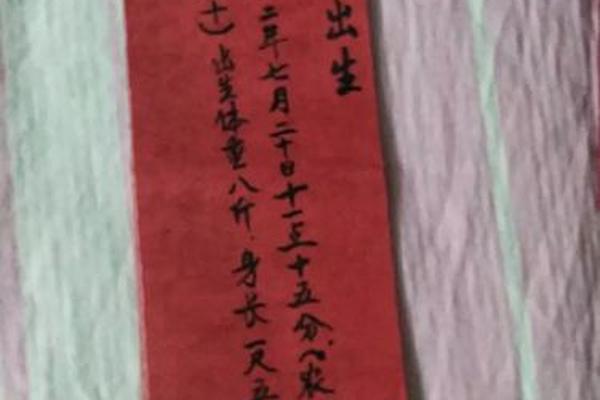 出生
二年七月二十日十一点十五分(农
十)出生体重八斤.身长一尺五